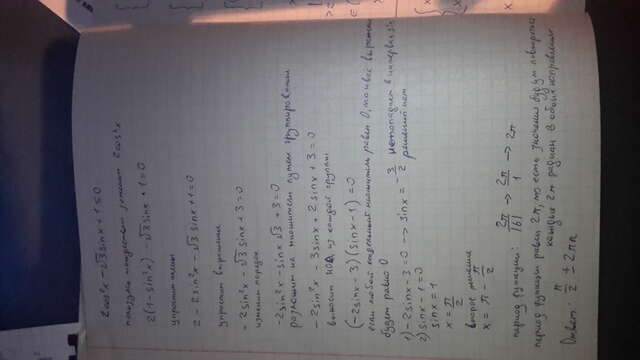 2cos²x - √3 sinx + 1 = 0
2(1 - sin²x) - √3 sinx + 1 = 0
упростить
2 - 2sin²x - √3 sinx + 1 = 0
упростить выражение
- 2sin²x - √3 sinx + 3 = 0
изменить порядок
-2sin²x - sinx √3 + 3 = 0
разложить на множители путем группирования
- 2sin²x - 3sinx + 2sinx + 3 = 0
выносим из каждой группы
(-2sinx - 3)(sinx - 1) = 0
если любой отдельный множитель равен 0, то и всё выражение
будет равно 0
1) -2sinx - 3 = 0 → sinx = -3/2 не попадает в интервал sin
решений нет
2) sinx - 1 = 0
sinx = 1
x = π/2
второе решение
x = π - π/2
период функции: 2π/|б| → 2π/1 → 2π
период функции равен 2π, то есть значения будут повторяться
каждые 2π радиан в обоих направлениях
Ответ: π/2 ± 2πn